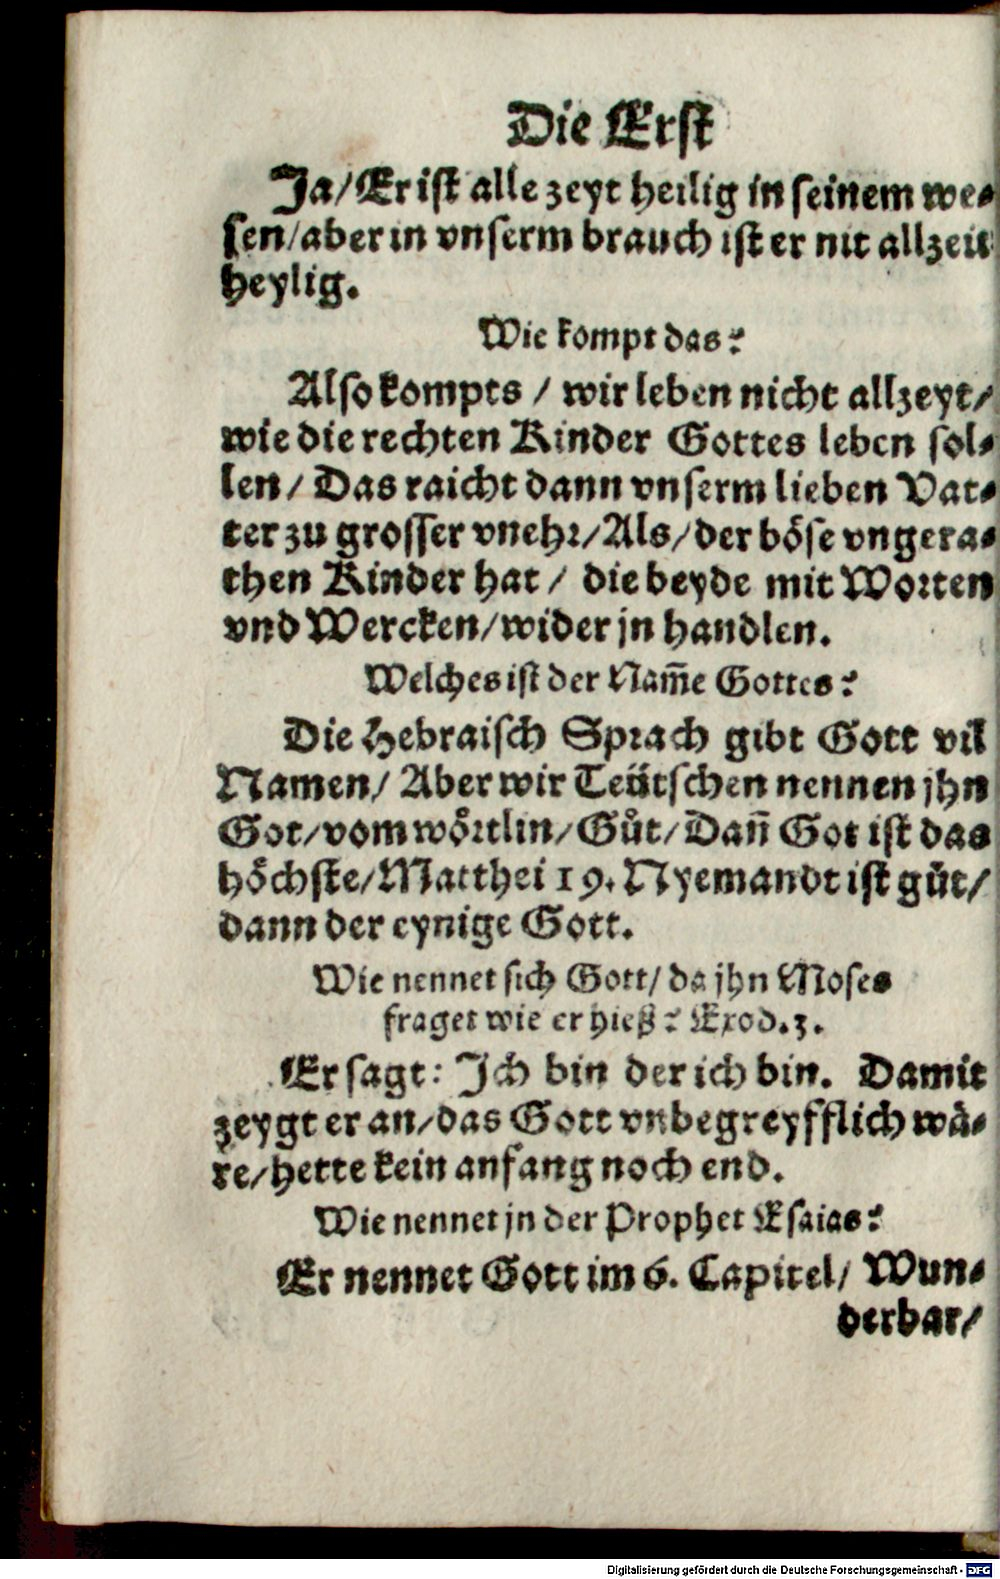 Die Erst
Ja/ Er ist alle zeyt heilig in seinem we⸗
sen/ aber in vnserm brauch ist er nit allzeit
heylig.
Wie kompt das?
Also kompts / wir leben nicht allzeyt/
wie die rechten Kinder Gottes leben sol⸗
len/ Das raicht dann vnserm lieben Vat⸗
ter zu grosser vnehr/ Als/ der böse vngera⸗
then Kinder hat / die beyde mit Worten
vnd Wercken/ wider jn handlen.
Welches ist der Nam̃e Gottes?
Die Hebraisch Sprach gibt Gott vil
Namen/ Aber wir Teütschen nennen jhn
Got/ vom wörtlin/ Gůt/ Dañ Got ist das
höchste/ Matthei 19. Nyemandt ist gůt/
dann der eynige Gott.
Wie nennet sich Gott/ da jhn Moses
fraget wie er hieß? Exod. 3.
Er sagt: Ich bin der ich bin. Damit
zeygt er an/ das Gott vnbegreyfflich wä⸗
re/ hette kein anfang noch end.
Wie nennet jn der Prophet Esaias?
Er nennet Gott im 6. Capitel/ Wun⸗
derbar/
Digitalisierung gefördert durch die Deutsche Forschungsgemeinschaft - DFG